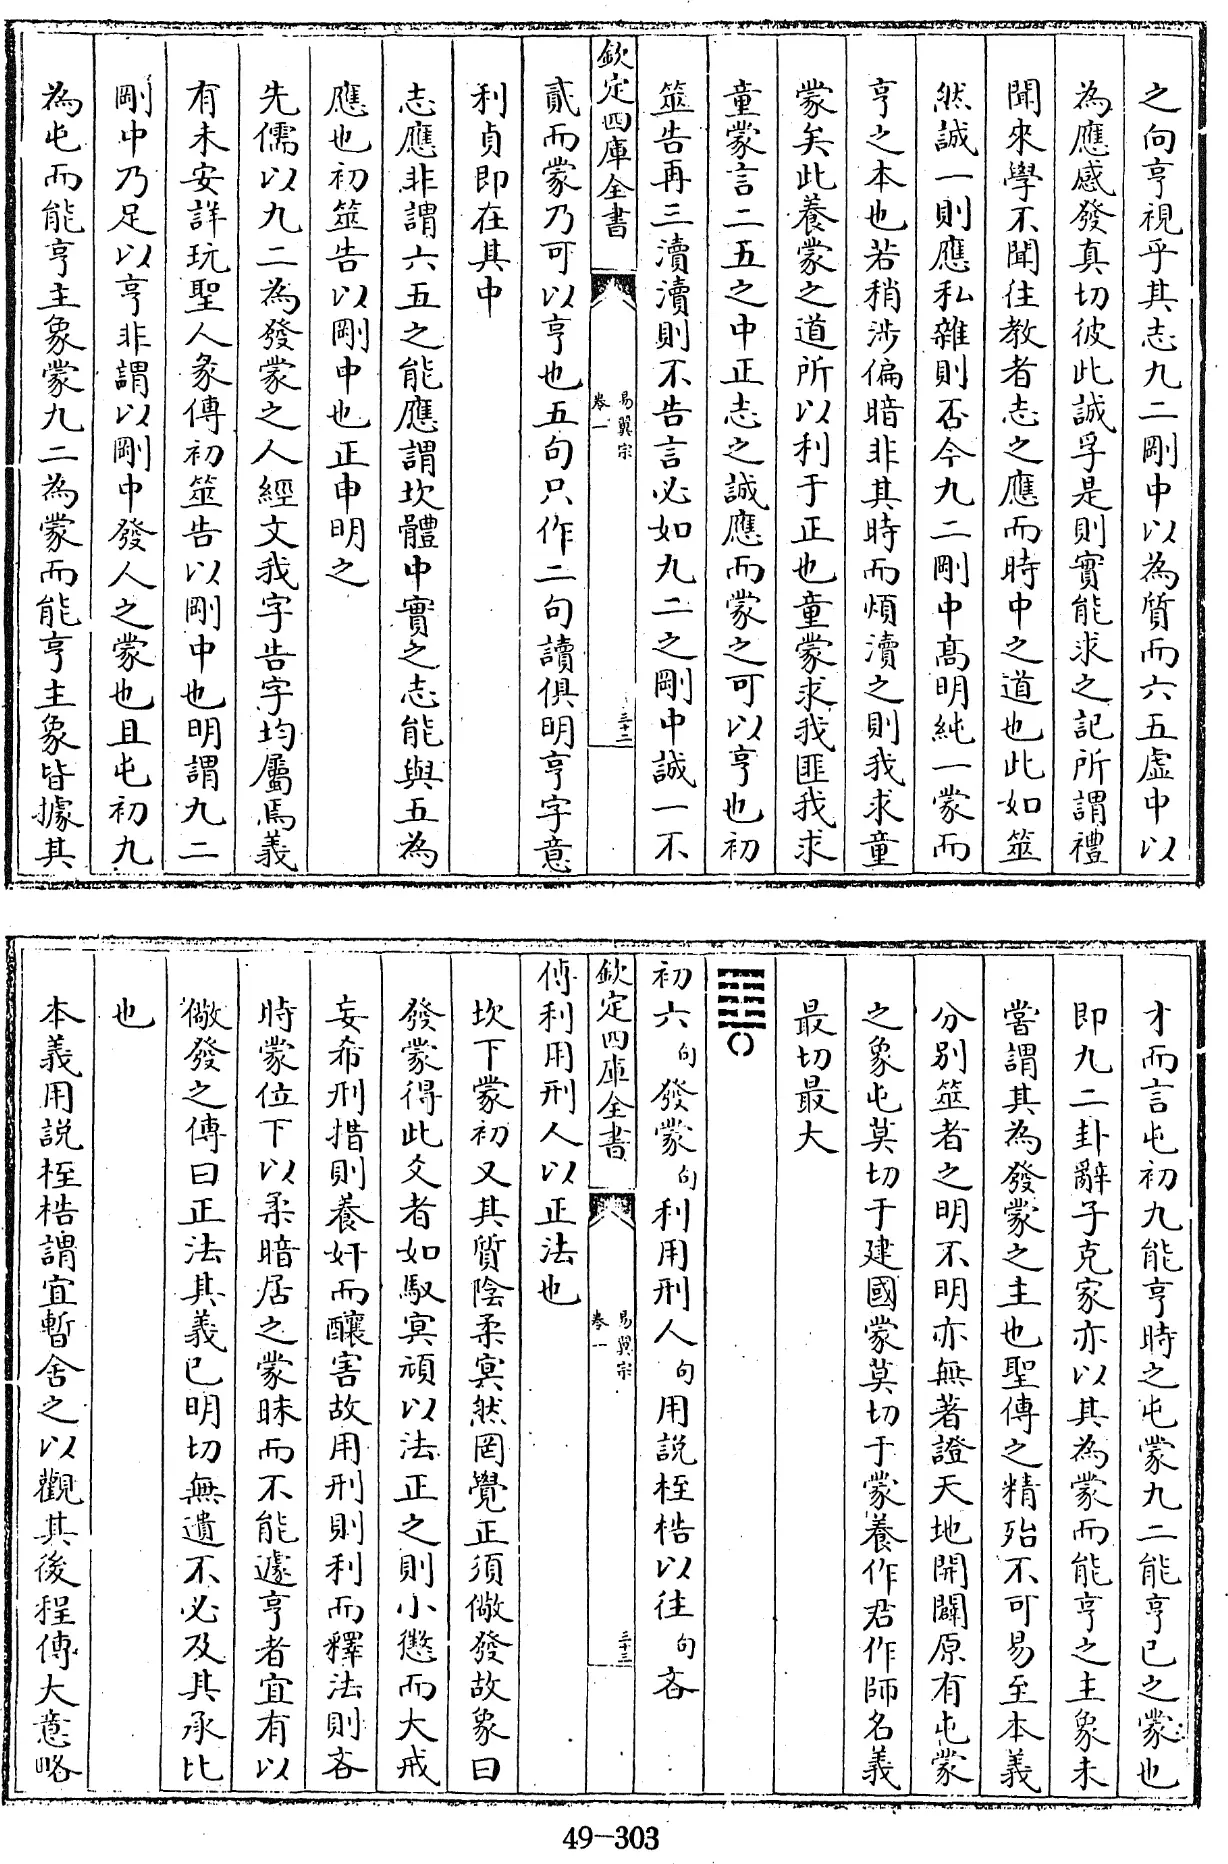 之向亨視乎其志九二剛中以為質而六五虛中以
為應感發真切彼此誠孚是則實能求之記所謂禮
聞來學不聞往教者志之應而時中之道也此如筮
然誠一則應私雜則否今九二剛中高明純一蒙而
亨之本也若稍涉偏暗非其時而煩瀆之則我求童
蒙矣此養蒙之道所以利于正也童蒙求我匪我求
童蒙言二五之中正志之誠應而蒙之可以亨也初
筮告再三瀆瀆則不告言必如九二之剛中誠一不
欽定四庫全書
易翼宗
卷一
三十二
貳而蒙乃可以亨也五句只作二句讀俱明亨字意
利貞即在其中
志應非謂六五之能應謂坎體中實之志能與五為
應也初筮告以剛中也正申明之
先儒以九二為發蒙之人經文我字告字均屬焉義
有未安詳玩聖人彖傳初筮告以剛中也明謂九二
剛中乃足以亨非謂以剛中發人之蒙也且屯初九
為屯而能亨主象蒙九二為蒙而能亨主象皆據其
才而言屯初九能亨時之屯蒙九二能亨已之蒙也
即九二卦辭子克家亦以其為蒙而能亨之主象未
嘗謂其為發蒙之主也聖傳之精殆不可易至本義
分別筮者之明不明亦無著證天地開闢原有屯蒙
之象屯莫切于建國蒙莫切于蒙養作君作師名義
最切最大
初六句發蒙句利用刑人句用説桎梏以往句吝
欽定四庫全書
易翼宗
卷一
三十三
傳利用刑人以正法也
坎下蒙初又其質陰柔冥然罔覺正須儆發故象曰
發蒙得此爻者如馭冥頑以法正之則小懲而大戒
妄希刑措則養奸而釀害故用刑則利而釋法則吝
時蒙位下以柔暗居之蒙昧而不能遽亨者宜有以
儆發之傳曰正法其義已明切無遺不必及其承比
也
本義用説桎梏謂宜暫舍之以觀其後程傳大意略
49-303